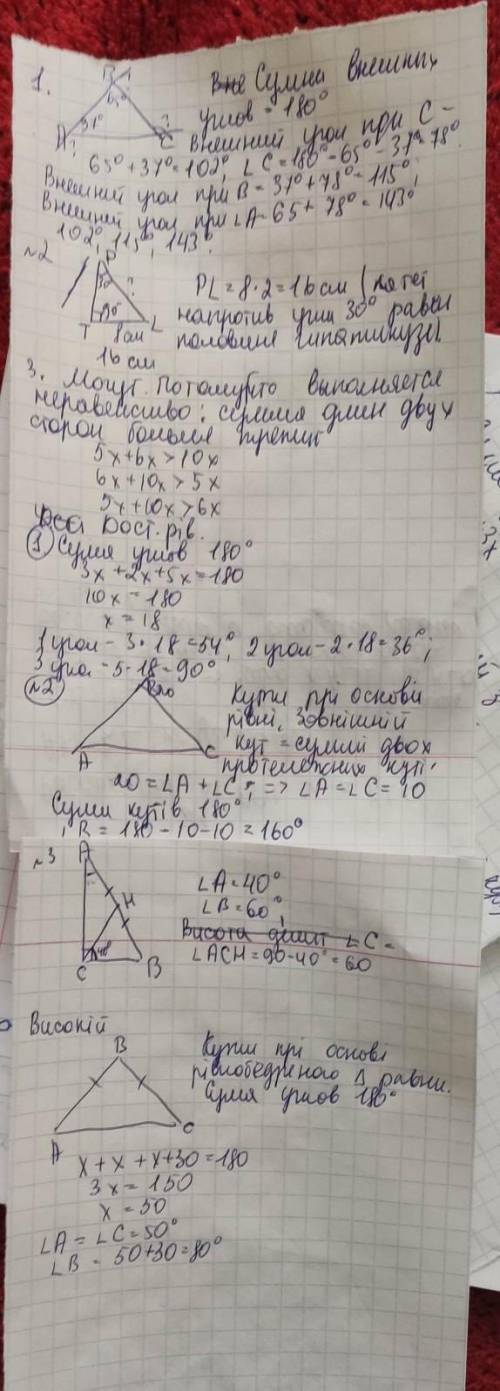 1.
B 1
65°
37°
A
C
Вне Сумма внешных
углов = 180°
Внешний угол при C -
65° + 37° = 102°, ∠C = 180° - 65° - 37° = 78°
Внешний угол при B = 37° + 78° = 115°,
Внешний угол при ∠A = 65 + 78° = 143°
102°, 115°, 143°.
№2
P
?
90°
T 8см L
PL = 8 · 2 = 16 см (катет
напротив угла 30° равен
половине гипотинузе).
16 см
3. Могут. Потомучто выполняется
неравенство: сумма длин двух
сторон больше третит
5x + 6x > 10x
6x + 10x > 5x
5x + 10x > 6x
Дост. рів.
1 Сума углов 180°
3x + 2x + 5x = 180
10x = 180
x = 18
1 угол - 3 · 18 = 54°, 2 угол - 2 · 18 = 36°;
3 угол - 5 · 18 = 90°
№2
B 20
A
C
Кути прі основі
рівні, Зовнішній
кут = суммі двох
протележних куті.
20 = ∠A + ∠C; => ∠A = ∠C = 10
Сума кутів 180°;
∠B = 180 - 10 - 10 = 160°
№3
A
H
40°
C
B
∠A = 40°
∠B = 60°;
Висота делит ∠C =
∠ACH = 90 - 40° = 60
Високій
B
A
C
Кути прі основі
рівнобедриного Δ равны.
Сумя углов 180°
x + x + x + 30 = 180
3x = 150
x = 50
∠A = ∠C = 50°
∠B = 50 + 30 = 80°